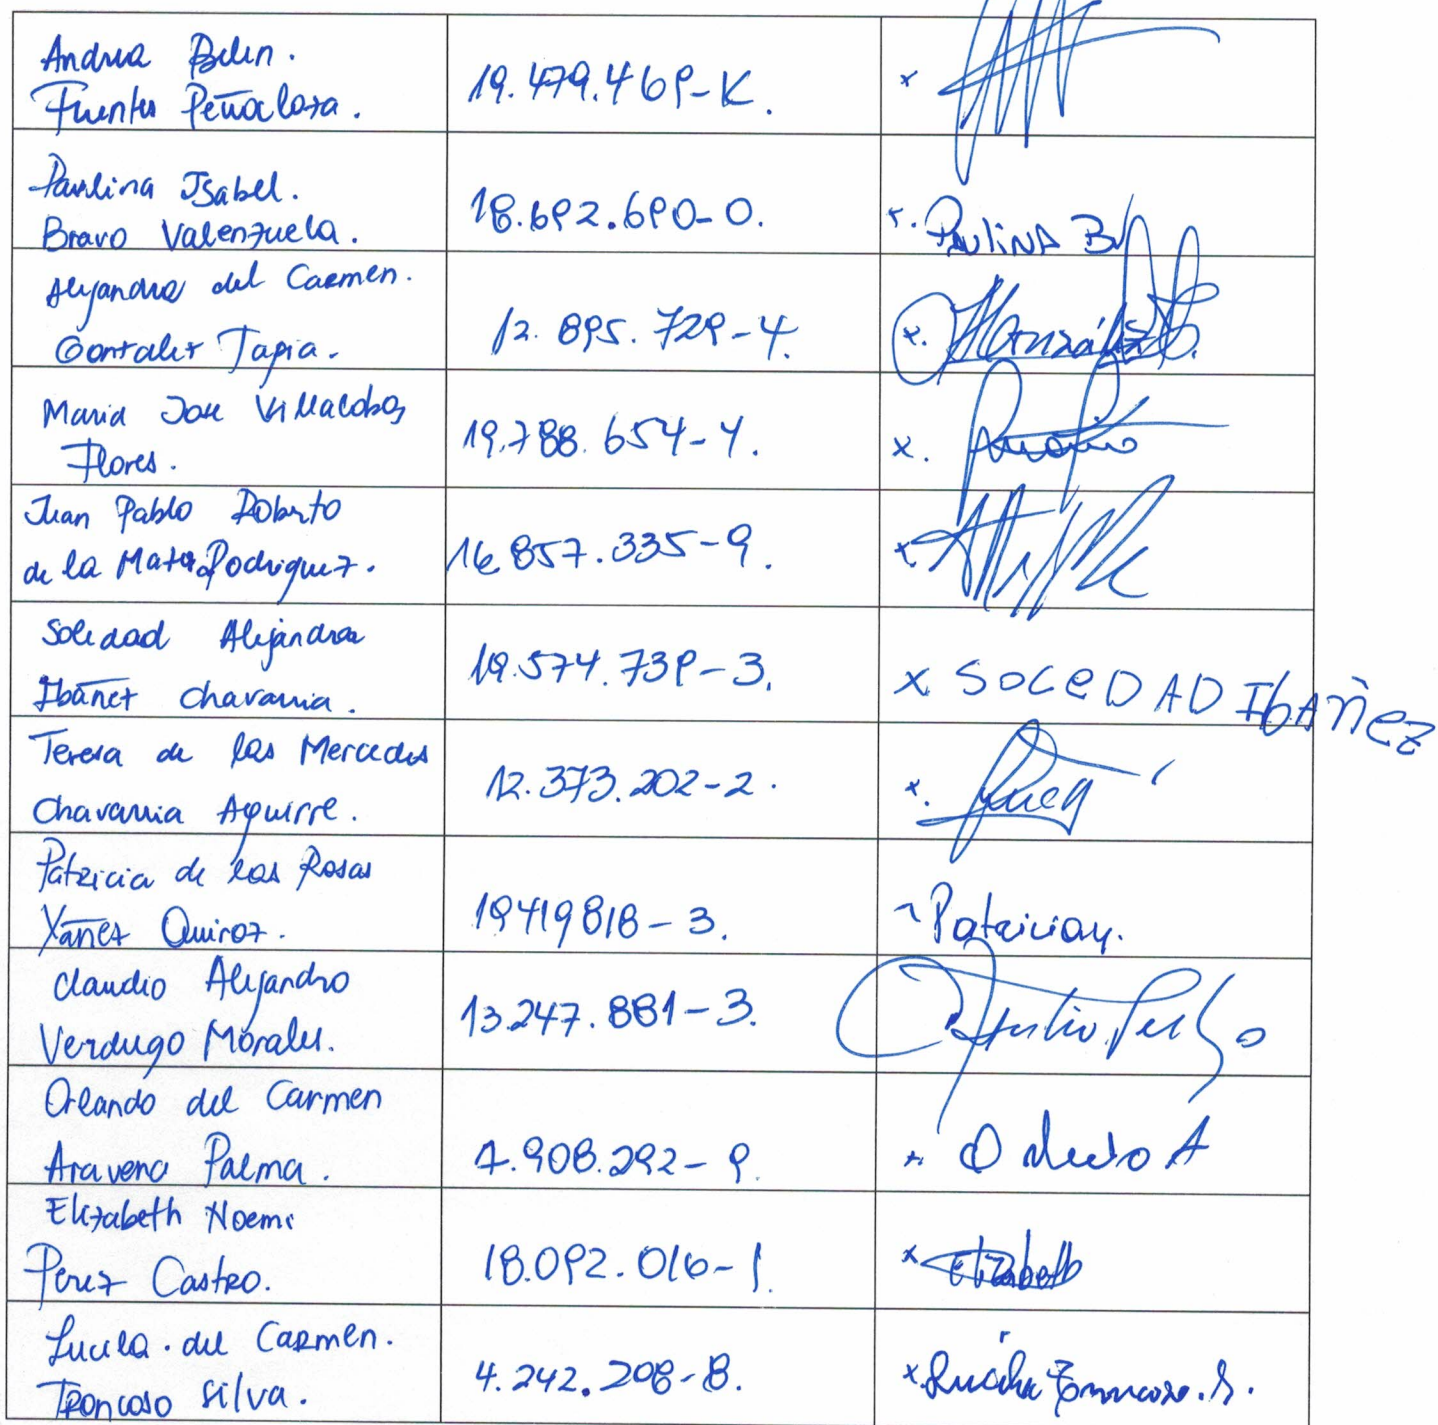 Andrea Belen.
Fuentes Peñaloza.
19.479.469-K.
x
Paulina Isabel.
Bravo Valenzuela.
18.692.690-0.
x. PAULINA BV
Alejandra del Carmen.
Gonzalez Tapia.
12.895.729-4.
x. González
Maria Jose Villalobos
Flores.
19.788.654-4.
x.
Juan Pablo Roberto
de la Mata Rodriguez.
16.857.335-9.
x
Soledad Alejandra
Ibañez Chavarria.
19.574.739-3.
x SOLEDAD IbAÑEZ
Teresa de las Mercedes
Chavarria Aguirre.
12.373.202-2.
x.
Patricia de las Rosas
Yañez Quiroz.
19419818-3.
Patriciay.
Claudio Alejandro
Verdugo Morales.
13.247.881-3.
Orlando del Carmen
Aravena Palma.
7.908.292-9.
Orlando A
Elizabeth Noemi
Perez Castro.
18.092.016-1.
x Elizabeth
Lucila. del Carmen.
Troncoso Silva.
4.242.208-8.
x. Lucila Troncoso. S.